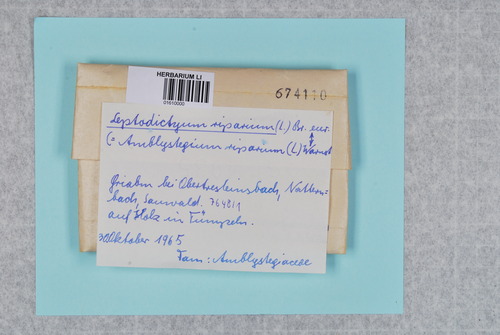 HERBARIUM LI
01610000
674110
Leptodictyum riparium (L.) Br. eur.
(= Amblystegium riparium (L.) Warnst
bei Obertresleinsbach, Nattern-
bach, Sauwald. 7648/1
auf Holz in Tümpeln.
30. Oktober 1965
Fam.: Amblystegiaceae